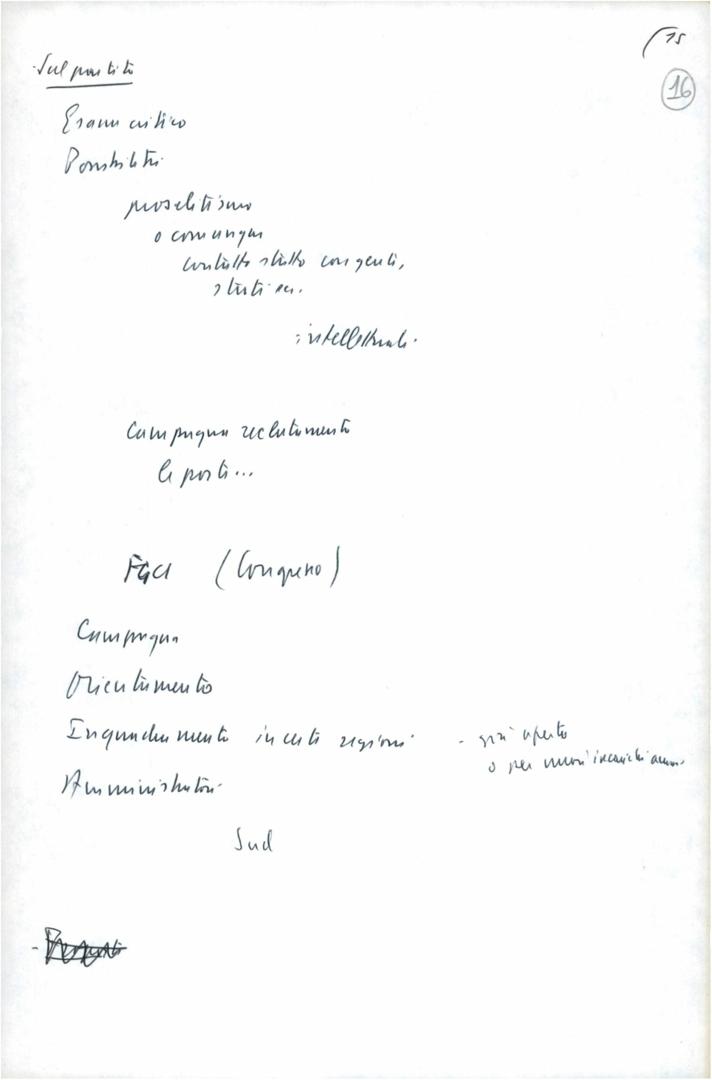 15
16
Sul partito
Esame critico
Possibilità
proselitismo
o comunque
contatto stretto con genti,
intellettuali.
Campagna reclutamento
le porte...
FGCI (Congresso)
Campagna
Orientamento
Inquadramento in certe regioni - già aperto
o per nuovi incarichi
Amministratori
Sud
-